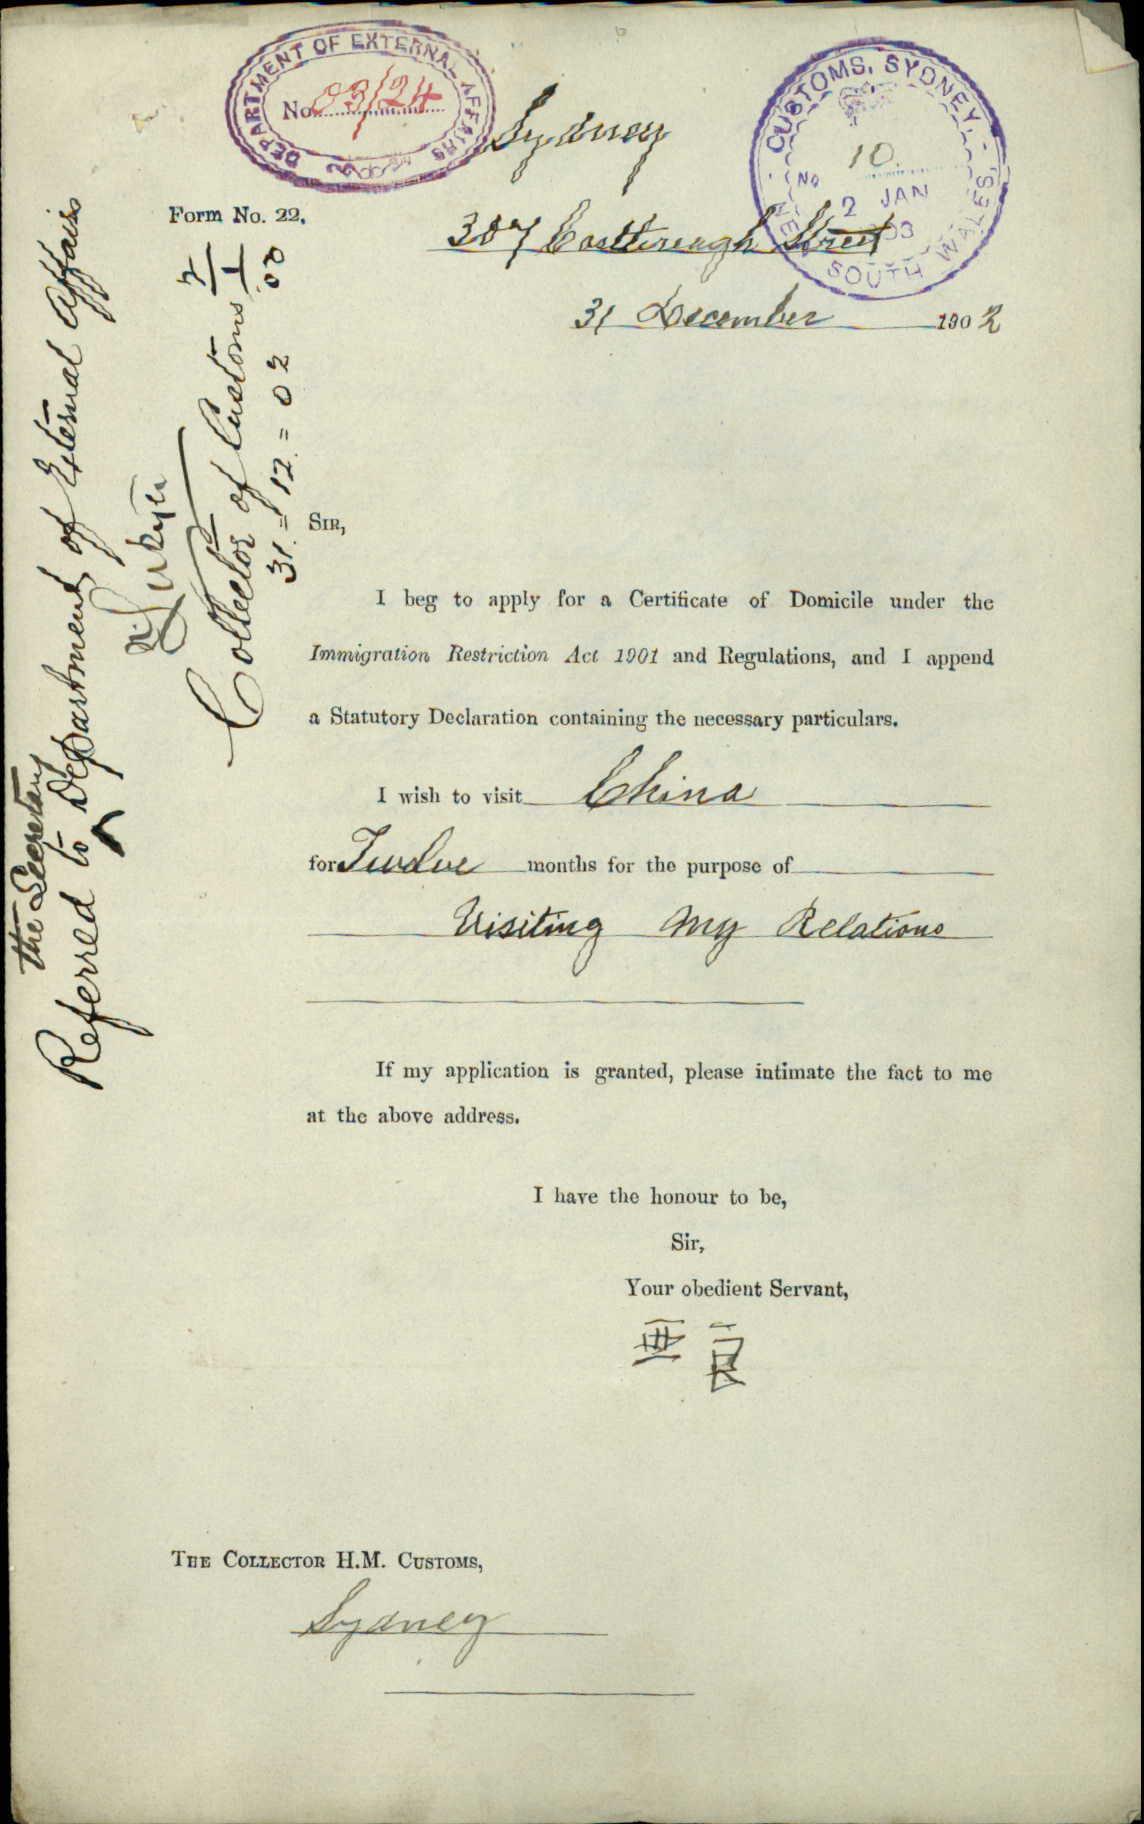 DEPARTMENT OF EXTERNAL AFFAIRS
No. 03/24
CUSTOMS, SYDNEY,
No 10.
2 JAN
03
NEW SOUTH WALES
Sydney
Form No. 22.
307 Castlereagh Street
31 December 1902
SIR,
I beg to apply for a Certificate of Domicile under the
Immigration Restriction Act 1901 and Regulations, and I append
a Statutory Declaration containing the necessary particulars.
I wish to visit China
for Twelve months for the purpose of
Visiting My Relations
If my application is granted, please intimate the fact to me
at the above address.
I have the honour to be,
Sir,
Your obedient Servant,
THE COLLECTOR H.M. CUSTOMS,
Sydney
the Secretary
Referred to Department of External Affairs
Collector of Customs
31 = 12 = 02